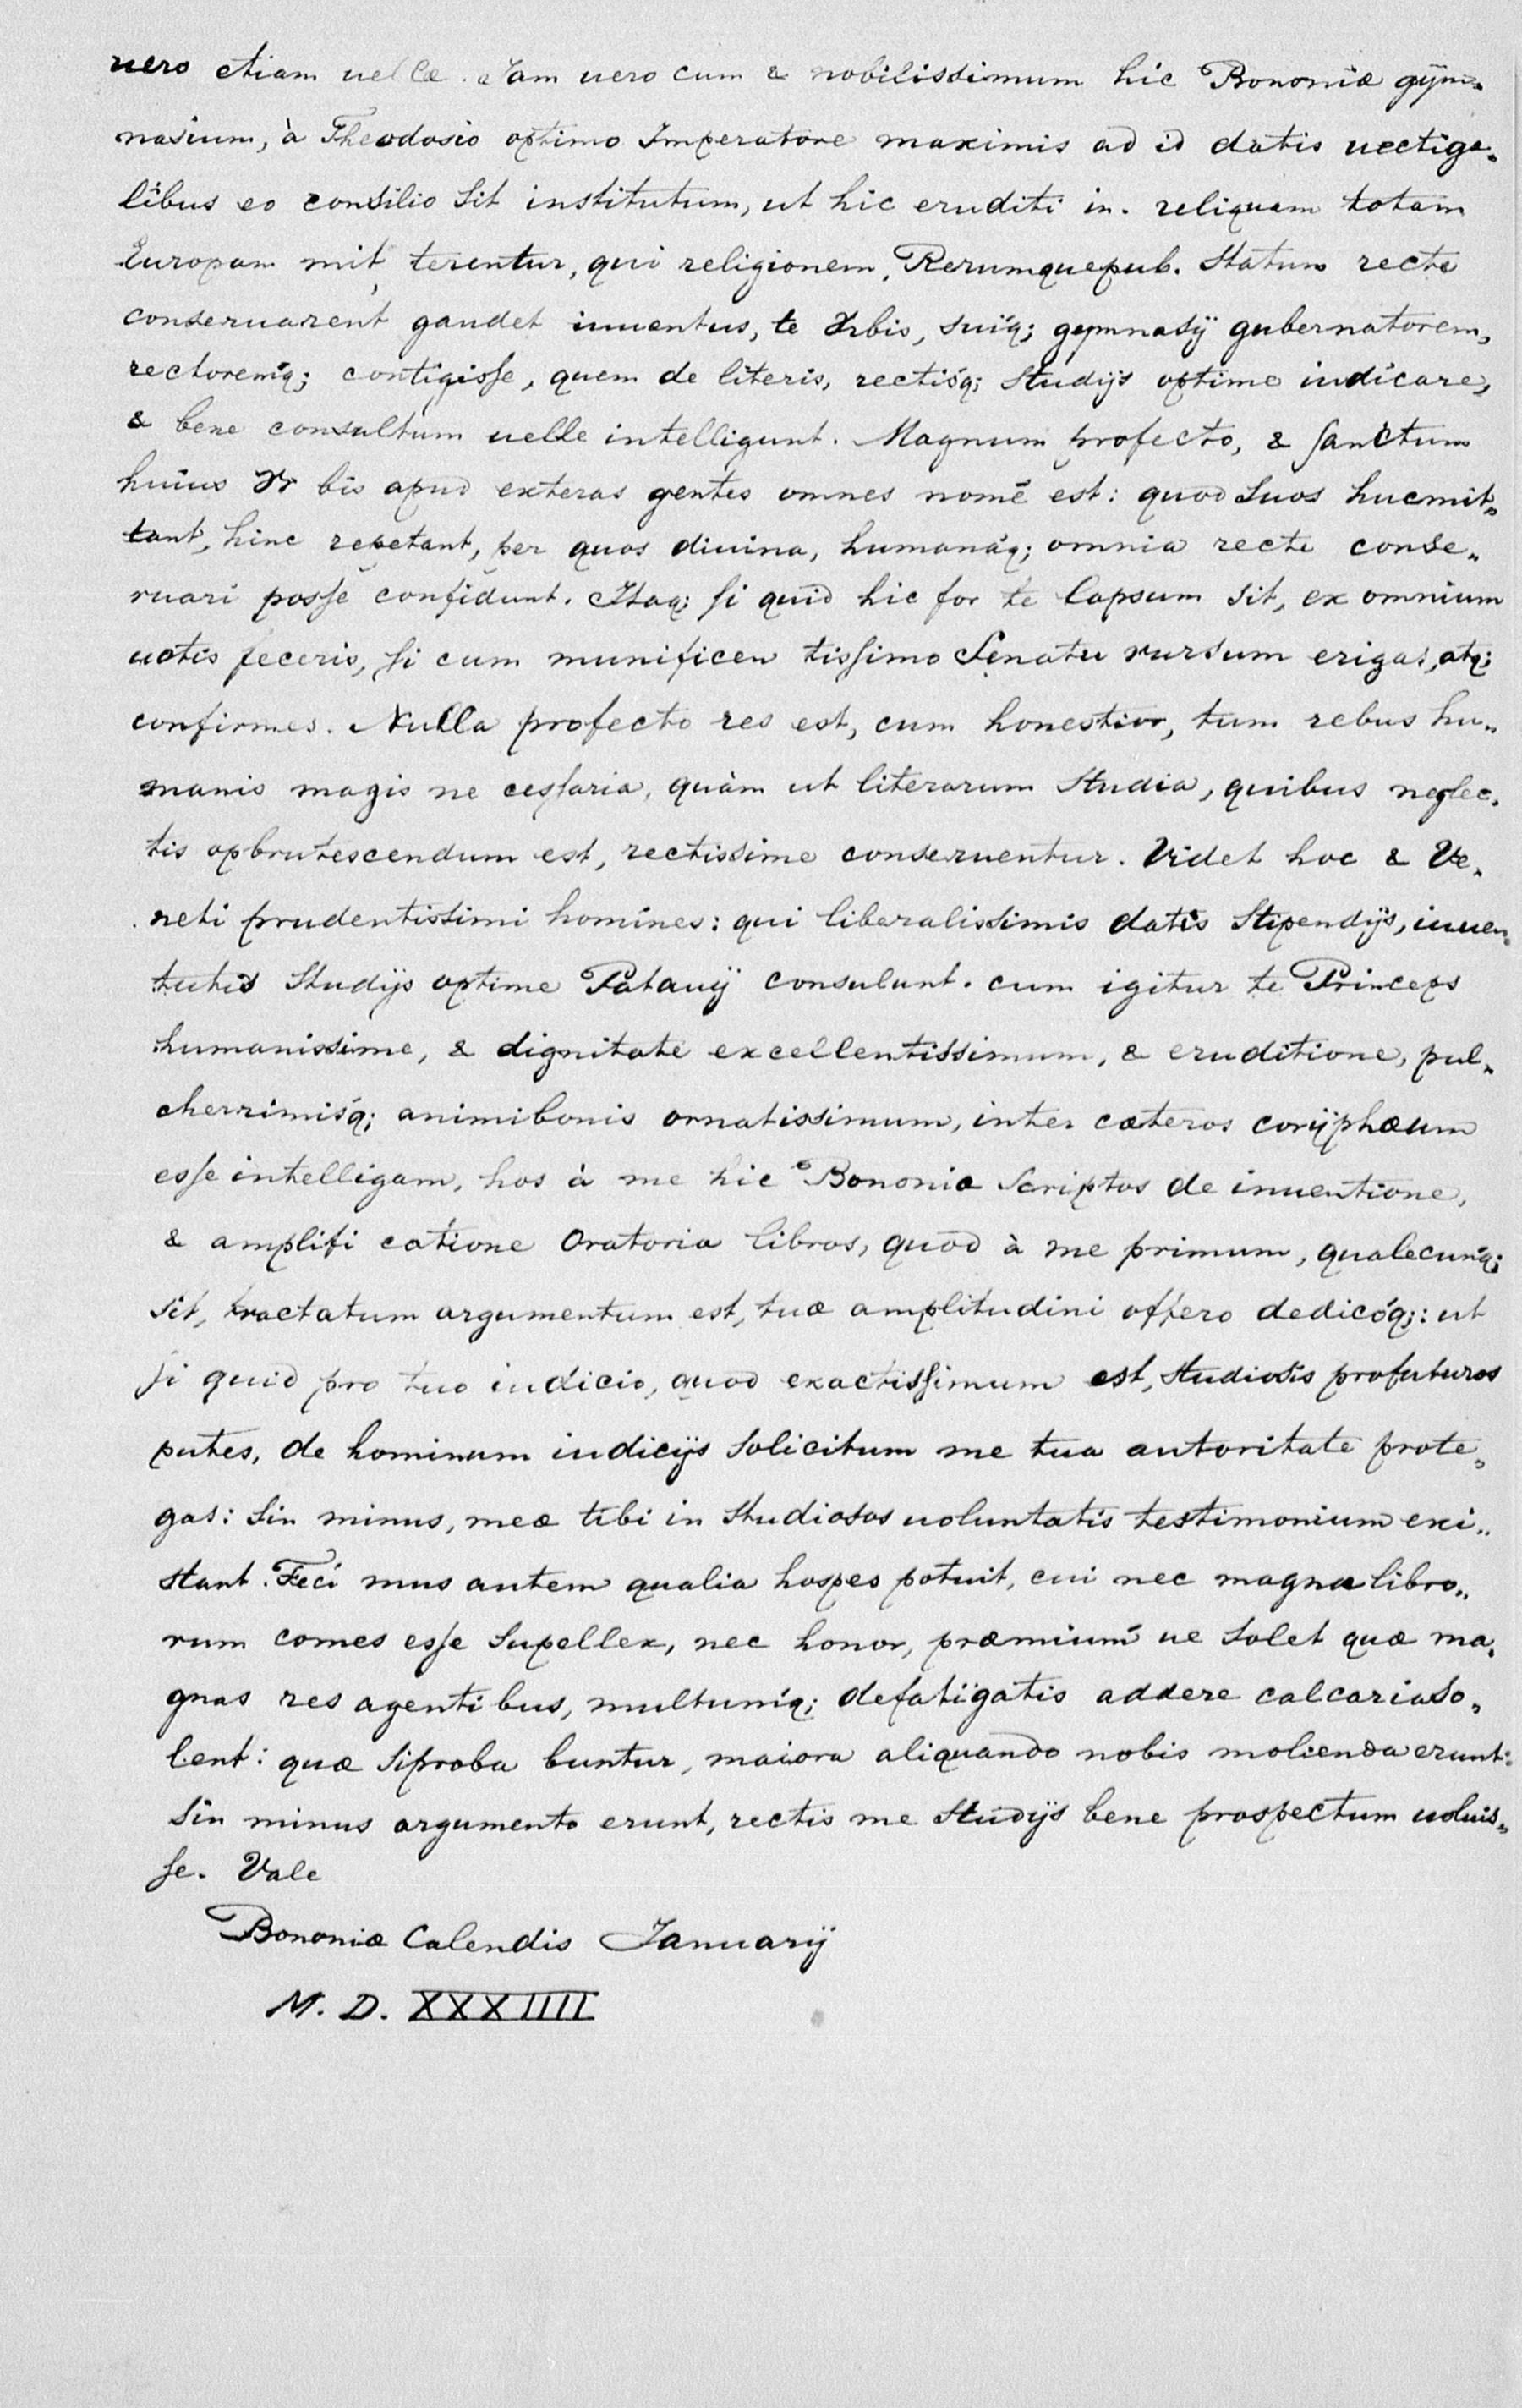 uero etiam uelle. Jam uero cum & nobilissimum hic Bononiæ gym„
nasium, à Theodosio optimo Imperatore maximis ad id datis uectiga„
libus eo consilio sit institutum, ut hic eruditi in. reliquam totam
Europam mit, terentur, qui religionem, Rerumquepub. statum recte
conseruarent gaudet iuuentus, te Vrbis, suiq; gymnasÿ gubernatorem,
rectoremq; contigisse, quem de literis, rectisq; studÿs optime iudicare,
& bene consultum uelle intelligunt. Magnum profecto, & sanctum
huius Vr bis apud exteras gentes omnes nomē est: quod suos hucmit„
tant, hinc repetant, per quos diuina, humanáq; omnia recte conse„
ruari posse confidunt. Itaq; si quid hic for te lapsum sit, ex omnium
uotis feceris, si cum munificen tissimo Senatu rursum erigas, atq;
confirmes. Nulla profecto res est, cum honestior, tum rebus hu„
manis magis ne cessaria, quàm ut literarum studia, quibus neglec.
tis opbrutescendum est, rectissime conseruentur. Videt hoc & Ve„
neti prudentissimi homines: qui liberalissimis datis stipendÿs, iuuen„
tutis studÿs optime Patauÿ consulunt. cum igitur te Princeps
humanissime, & dignitate excellentissimum, & eruditione, pul„
cherrimisq; animibonis ornatissimum, inter cæteros corÿphæum
esse intelligam, hos à me hic Bononiæ scriptos de inuentione,
& amplifi catione Oratoria libros, quod à me primum, qualecunq;
sit, tractatum argumentum est, tuæ amplitudini offero dedicóq;: ut
si quid pro tuo iudicio, quod exactissimum est, studiosis profuturos
putes, de hominum iudicÿs solicitum me tua autoritate prote„
gas: sin minus, meæ tibi in studiosos uoluntatis testimonium exi„
stant. Feci mus autem qualia hospes potuit, cui nec magna libro„
rum comes esse supellex, nec honor, præmium ue solet quæ ma„
gnas res agenti bus, multumq; defatigatis addere calcariaso„
lent: quæ siproba buntur, maiora aliquando nobis molienda erunt:
sin minus argumento erunt, rectis me studÿs bene prospectum uoluis„
se. Vale
Bononiæ Calendis Januarÿ
M. D. XXXIIII